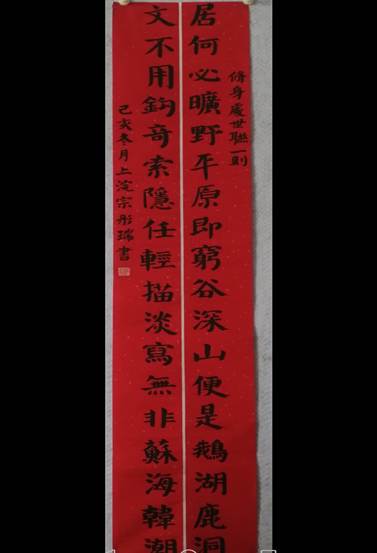 居何必曠野平原即窮谷深山便是鵝湖鹿洞
脩身處世聯一則
文不用鈎奇索隱任輕描淡寫無非蘇海韓潮
己亥冬月上浣宗彤瑞書